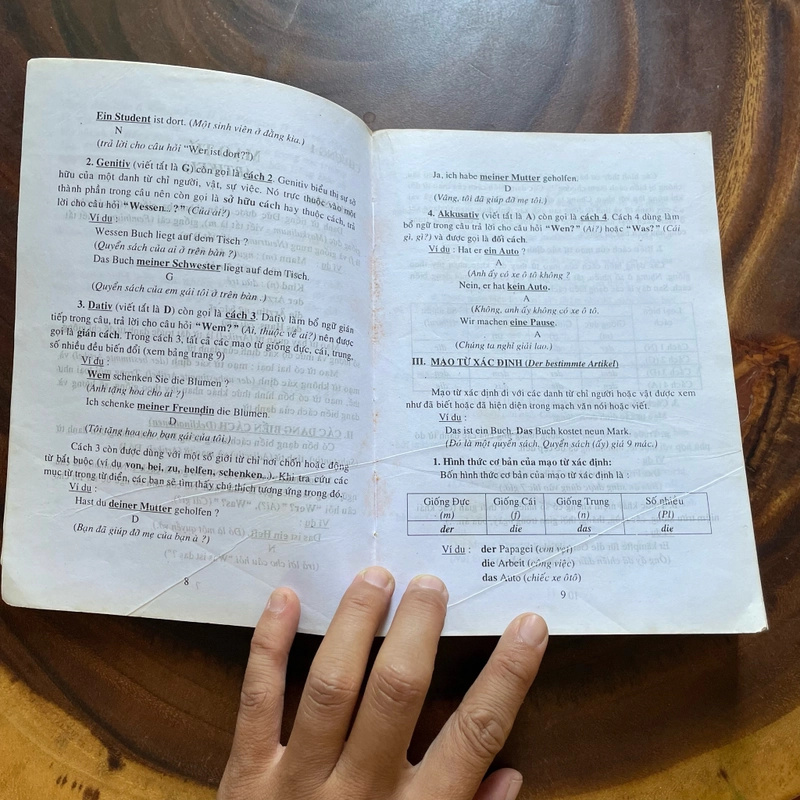 Ein Student ist dort. (Một sinh viên ở đằng kia.)
N
(trả lời cho câu hỏi "Wer ist dort?")
2. Genitiv (viết tắt là G) còn gọi là cách 2. Genitiv biểu thị sự sở
hữu của một danh từ chỉ người, vật, sự việc. Nó trực thuộc vào một
thành phần trong câu nên còn gọi là sở hữu cách hay thuộc cách, trả
lời cho câu hỏi "Wessen..?" (Của ai?)
Ví dụ :
Wessen Buch liegt auf dem Tisch ?
(Quyển sách của ai ở trên bàn ?)
Das Buch meiner Schwester liegt auf dem Tisch.
G
(Quyển sách của em gái tôi ở trên bàn .)
3. Dativ (viết tắt là D) còn gọi là cách 3. Dativ làm bổ ngữ gián
tiếp trong câu, trả lời cho câu hỏi "Wem?" (Ai, thuộc về ai?) nên được
gọi là gián cách. Trong cách 3, tất cả các mạo từ giống đực, cái, trung,
số nhiều đều biến đổi (xem bảng trang 9)
Ví dụ :
Wem schenken Sie die Blumen ?
(Anh tặng hoa cho ai ?)
Ich schenke meiner Freundin die Blumen.
D
(Tôi tặng hoa cho bạn gái của tôi.)
Cách 3 còn được dùng với một số giới từ chỉ nơi chốn hoặc động
từ bắt buộc (ví dụ von, bei, zu, helfen, schenken..). Khi tra cứu các
mục từ trong từ điển, các bạn sẽ tìm thấy chú thích tương ứng trong đó.
Ví dụ :
Hast du deiner Mutter geholfen ?
D
(Bạn đã giúp đỡ mẹ của bạn à ?)
8
Ja, ich habe meiner Mutter geholfen.
D
(Vâng, tôi đã giúp đỡ mẹ tôi.)
4. Akkusativ (viết tắt là A) còn gọi là cách 4. Cách 4 dùng làm
bổ ngữ trong câu trả lời cho câu hỏi "Wen?" (Ai?) hoặc "Was?" (Cái
gì, gì?) và được gọi là đối cách.
Ví dụ : Hat er ein Auto ?
A
(Anh ấy có xe ô tô không ?
Nein, er hat kein Auto.
A
(Không, anh ấy không có xe ô tô.
Wir machen eine Pause.
A
(Chúng ta nghỉ giải lao.)
III. MẠO TỪ XÁC ĐỊNH (Der bestimmte Artikel)
Mạo từ xác định đi với các danh từ chỉ người hoặc vật được xem
như đã biết hoặc đã hiện diện trong mạch văn nói hoặc viết.
Ví dụ :
Das ist ein Buch. Das Buch kostet neun Mark.
(Đó là một quyển sách. Quyển sách (ấy) giá 9 mác.)
1. Hình thức cơ bản của mạo từ xác định:
Bốn hình thức cơ bản của mạo từ xác định là :
Giống Đực Giống Cái Giống Trung Số nhiều
(m) (f) (n) (Pl)
der die das die
Ví dụ : der Papagei (con vẹt)
die Arbeit (công việc)
das Auto (chiếc xe ôtô)
9